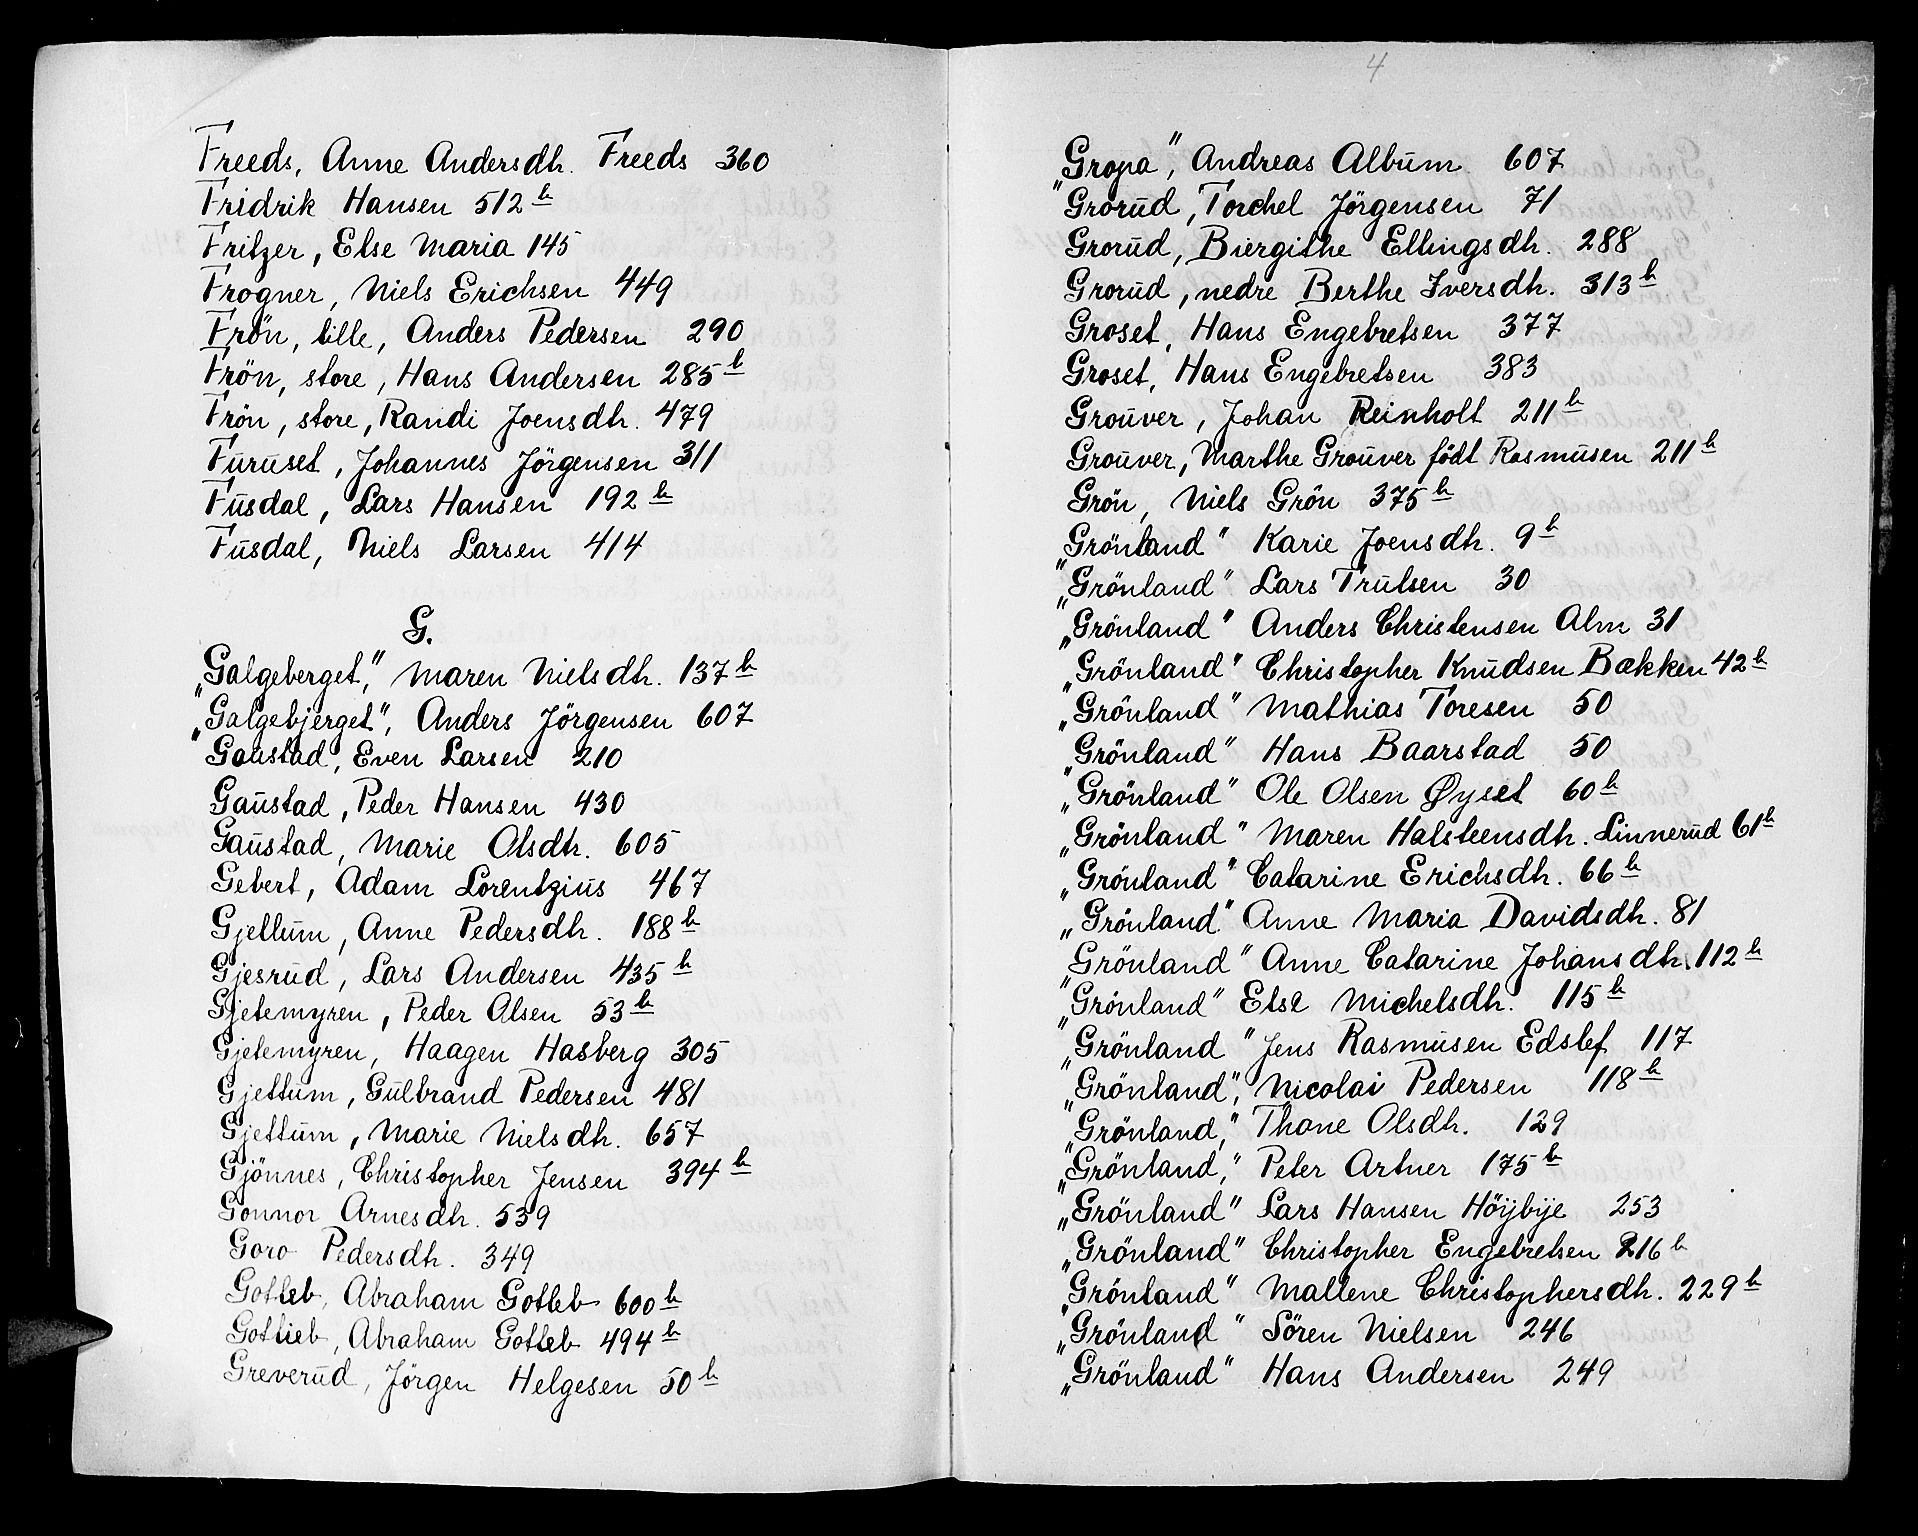 Freeds, Anne Andersdh. Freeds 360
Fridrik Hansen 512 b
Fritzer, Else Maria 145
Frogner, Niels Erichsen 449
Frön, lille, Anders Pedersen 290
Frön, store, Hans Andersen 285 b
Frön, store, Randi Joensdh. 479
Furuset, Johannes Jörgensen 311
Fusdal, Lars Hansen 192 b
Fusdal, Niels Larsen 414
G.
„Galgeberget,” Maren Nielsdh. 137 b
„Galgebjerget”, Anders Jörgensen 607
Gaustad, Even Larsen 210
Gaustad, Peder Hansen 430
Gaustad, Marie Olsdtr. 605
Gebert, Adam Lorentzius 467
Gjellum, Anne Pedersdh. 188 b
Gjesrud, Lars Andersen 435 b
Gjetemyren, Peder Olsen 53 b
Gjetemyren, Haagen Hasberg 305
Gjettum, Gulbrand Pedersen 481
Gjettum, Marie Nielsdh. 657
Gjönnes, Christopher Jensen 394 b
Gonnor Arnesdh. 539
Goro Pedersdh. 349
Gotleb, Abraham Gotleb 600 b
Gotlieb, Abraham Gotleb 494 b
Greverud, Jörgen Helgesen 50 b
4
„Gropa”, Andreas Album 607
Grorud, Torchel Jörgensen 71
Grorud, Biergithe Ellingsdh. 288
Grorud, nedre Berthe Iversdh. 313 b
Groset, Hans Engebretsen 377
Groset, Hans Engebretsen 383
Grouver, Johan Reinholt 211 b
Grouver, Marthe Grouver födt Rasmusen 211 b
Grön, Niels Grön 375 b
„Grönland” Karie Joensdh. 9 b
„Grönland” Lars Trulsen 30
„Grönland” Anders Christensen Alm 31
„Grönland” Christopher Knudsen Bækken 42 b
„Grönland” Mathias Toresen 50
„Grönland” Hans Baarstad 50
„Grönland” Ole Olsen Øyset 60 b
„Grönland” Maren Halsteensdh. Linnerud 61 b
„Grönland” Catarine Erichsdh. 66 b
„Grönland” Anne Maria Davidsdh. 81
„Grönland” Anne Catarine Johansdh. 112 b
„Grönland” Else Michelsdh. 115 b
„Grönland” Jens Rasmusen Edslef 117
„Grönland”, Nicolai Pedersen 118 b
„Grönland,” Thone Olsdh. 129
„Grönland,” Peter Artner 175 b
„Grönland” Lars Hansen Höijbije 253
„Grönland” Christopher Engebretsen 216 b
„Grönland” Mallene Christophersdh. 229 b
„Grönland” Sören Nielsen 246
„Grönland” Hans Andersen 249